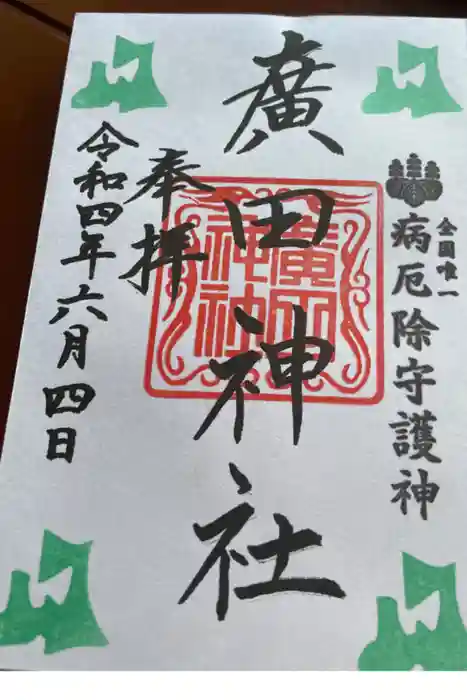 全国唯一
病厄除守護神
廣田神社
廣田
神社
奉拝
令和四年六月四日